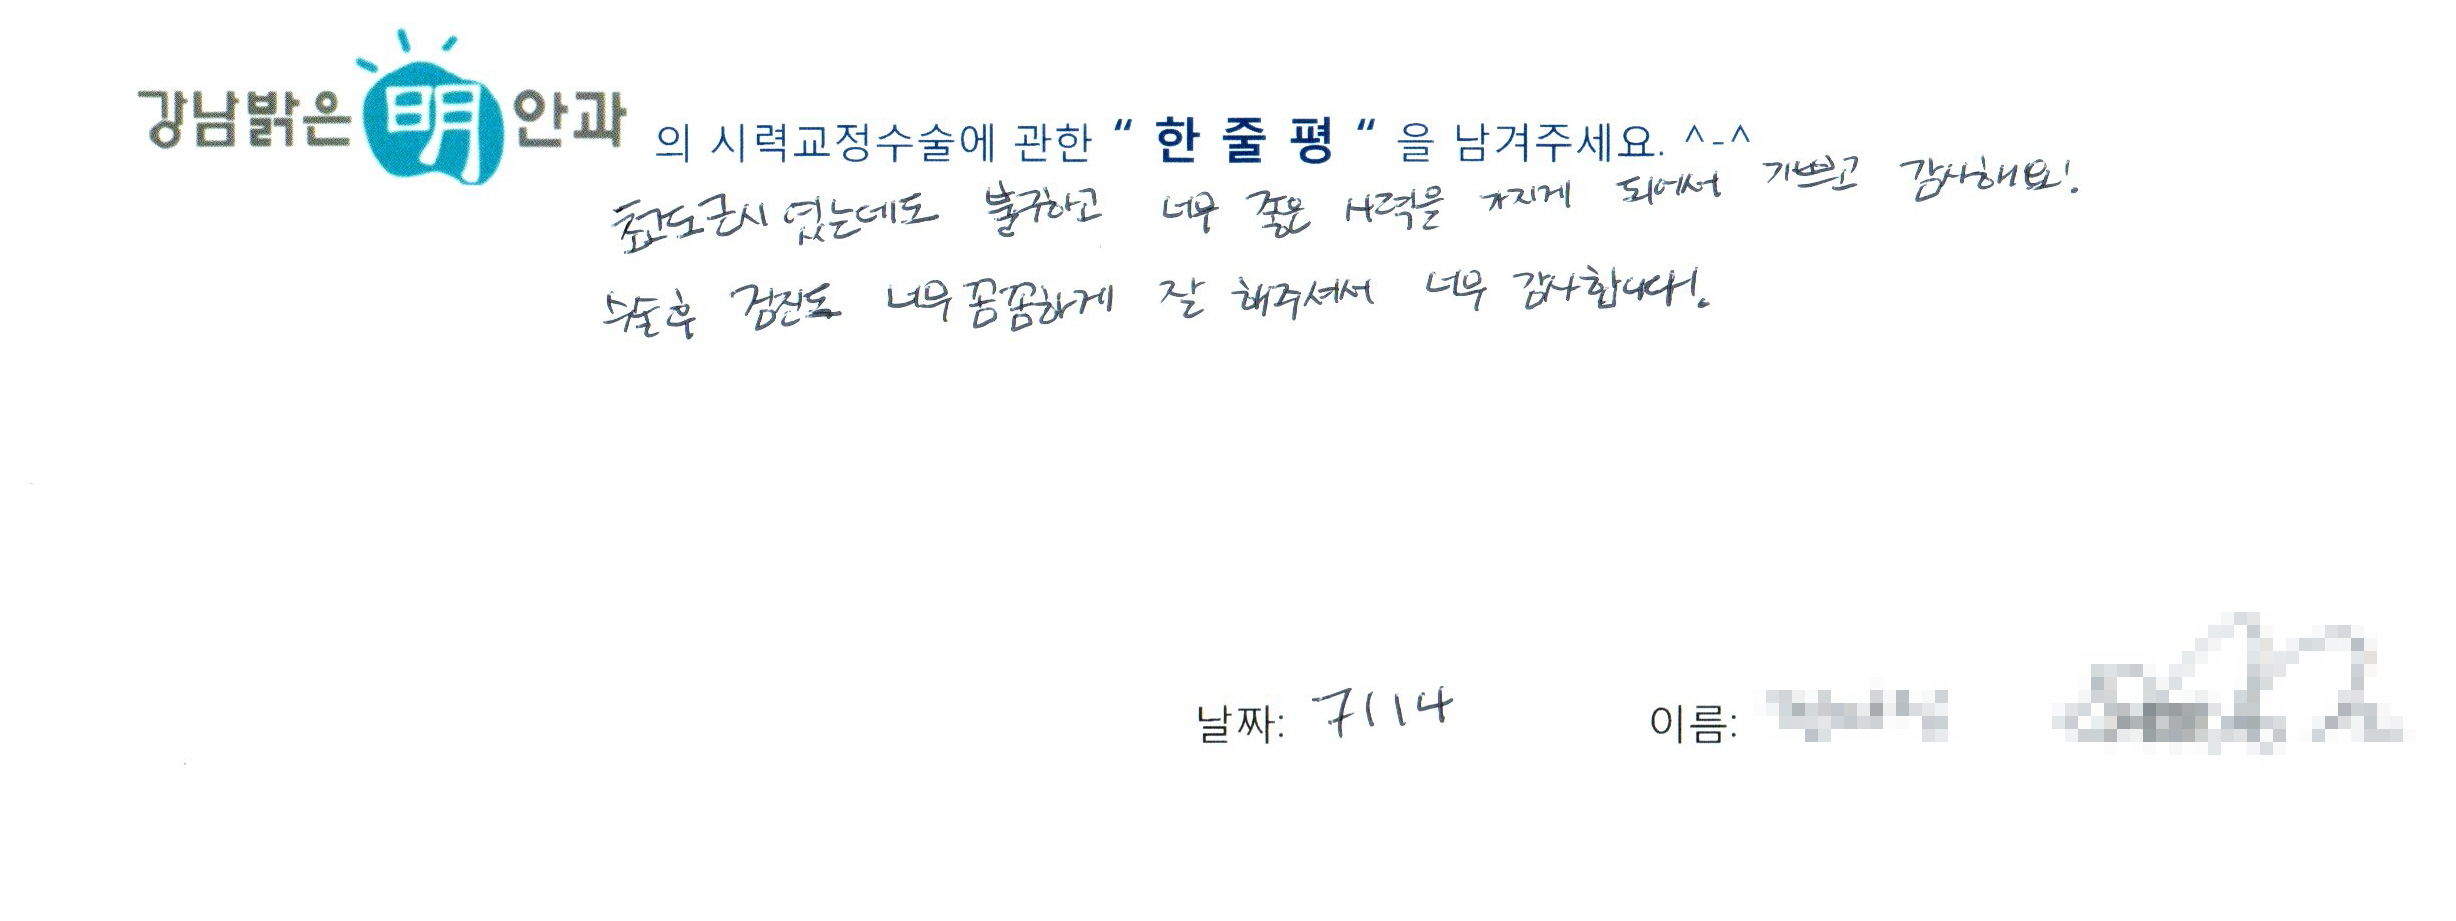 강남밝은明안과 의 시력교정수술에 관한 “ 한 줄 평 “ 을 남겨주세요. ^-^
초고도근시 였는데도 불구하고 너무 좋은 시력을 가지게 되어서 기쁘고 감사해요!
수술후 검진도 너무 꼼꼼하게 잘 해주셔서 너무 감사합니다!
날짜: 7/14 이름: